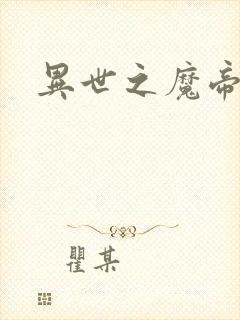 異世之魔帝
瞿某